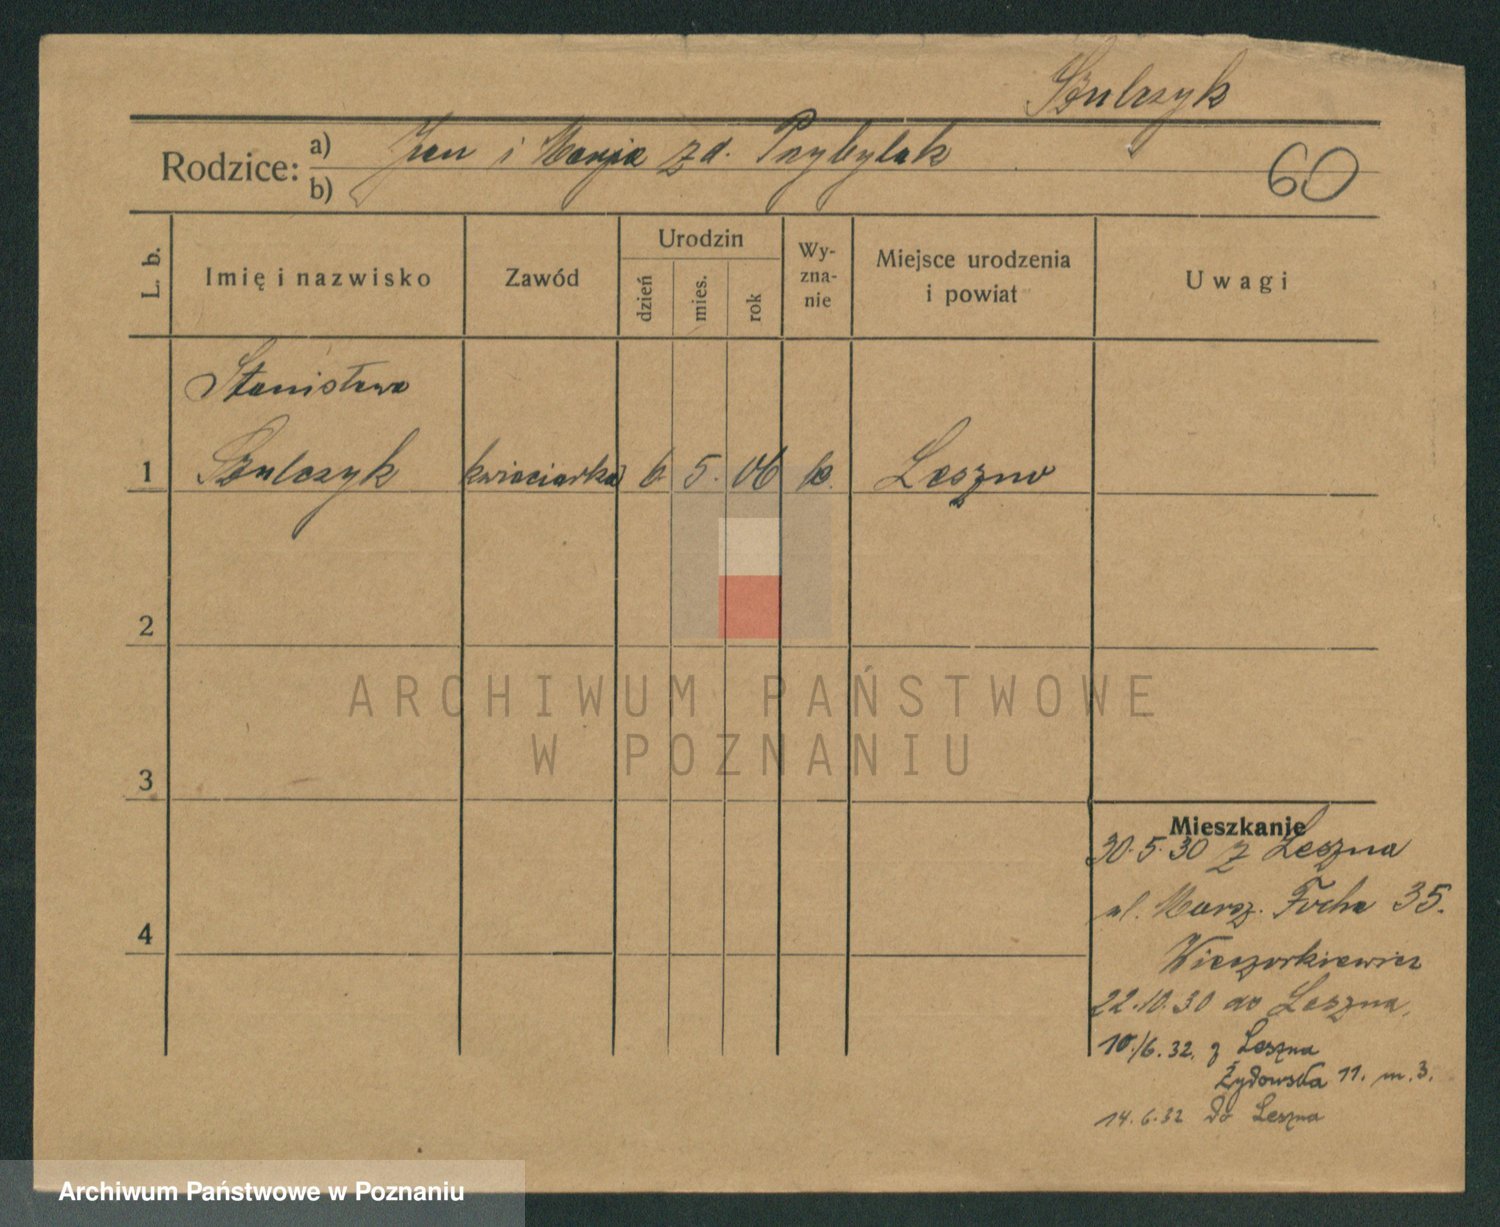 Szulczyk
Rodzice: a) Jan i Marja zd. Przybylak
b)
60
L. b.
Imię i nazwisko
Zawód
Urodzin
dzień
mies.
rok
Wy-
zna-
nie
Miejsce urodzenia
i powiat
Uwagi
Stanisława
1 Szulczyk kwieciarka 6 5. 06 k. Leszno
2
3
4
ARCHIWUM PAŃSTWOWE
W POZNANIU
Mieszkanie
30.5.30 z Leszna
ul. Marsz. Focha 35.
Wieczorkiewicz
22.10.30 do Leszna.
10./6.32. z Leszna
Żydowska 11. m. 3.
14.6.32 do Leszna
Archiwum Państwowe w Poznaniu